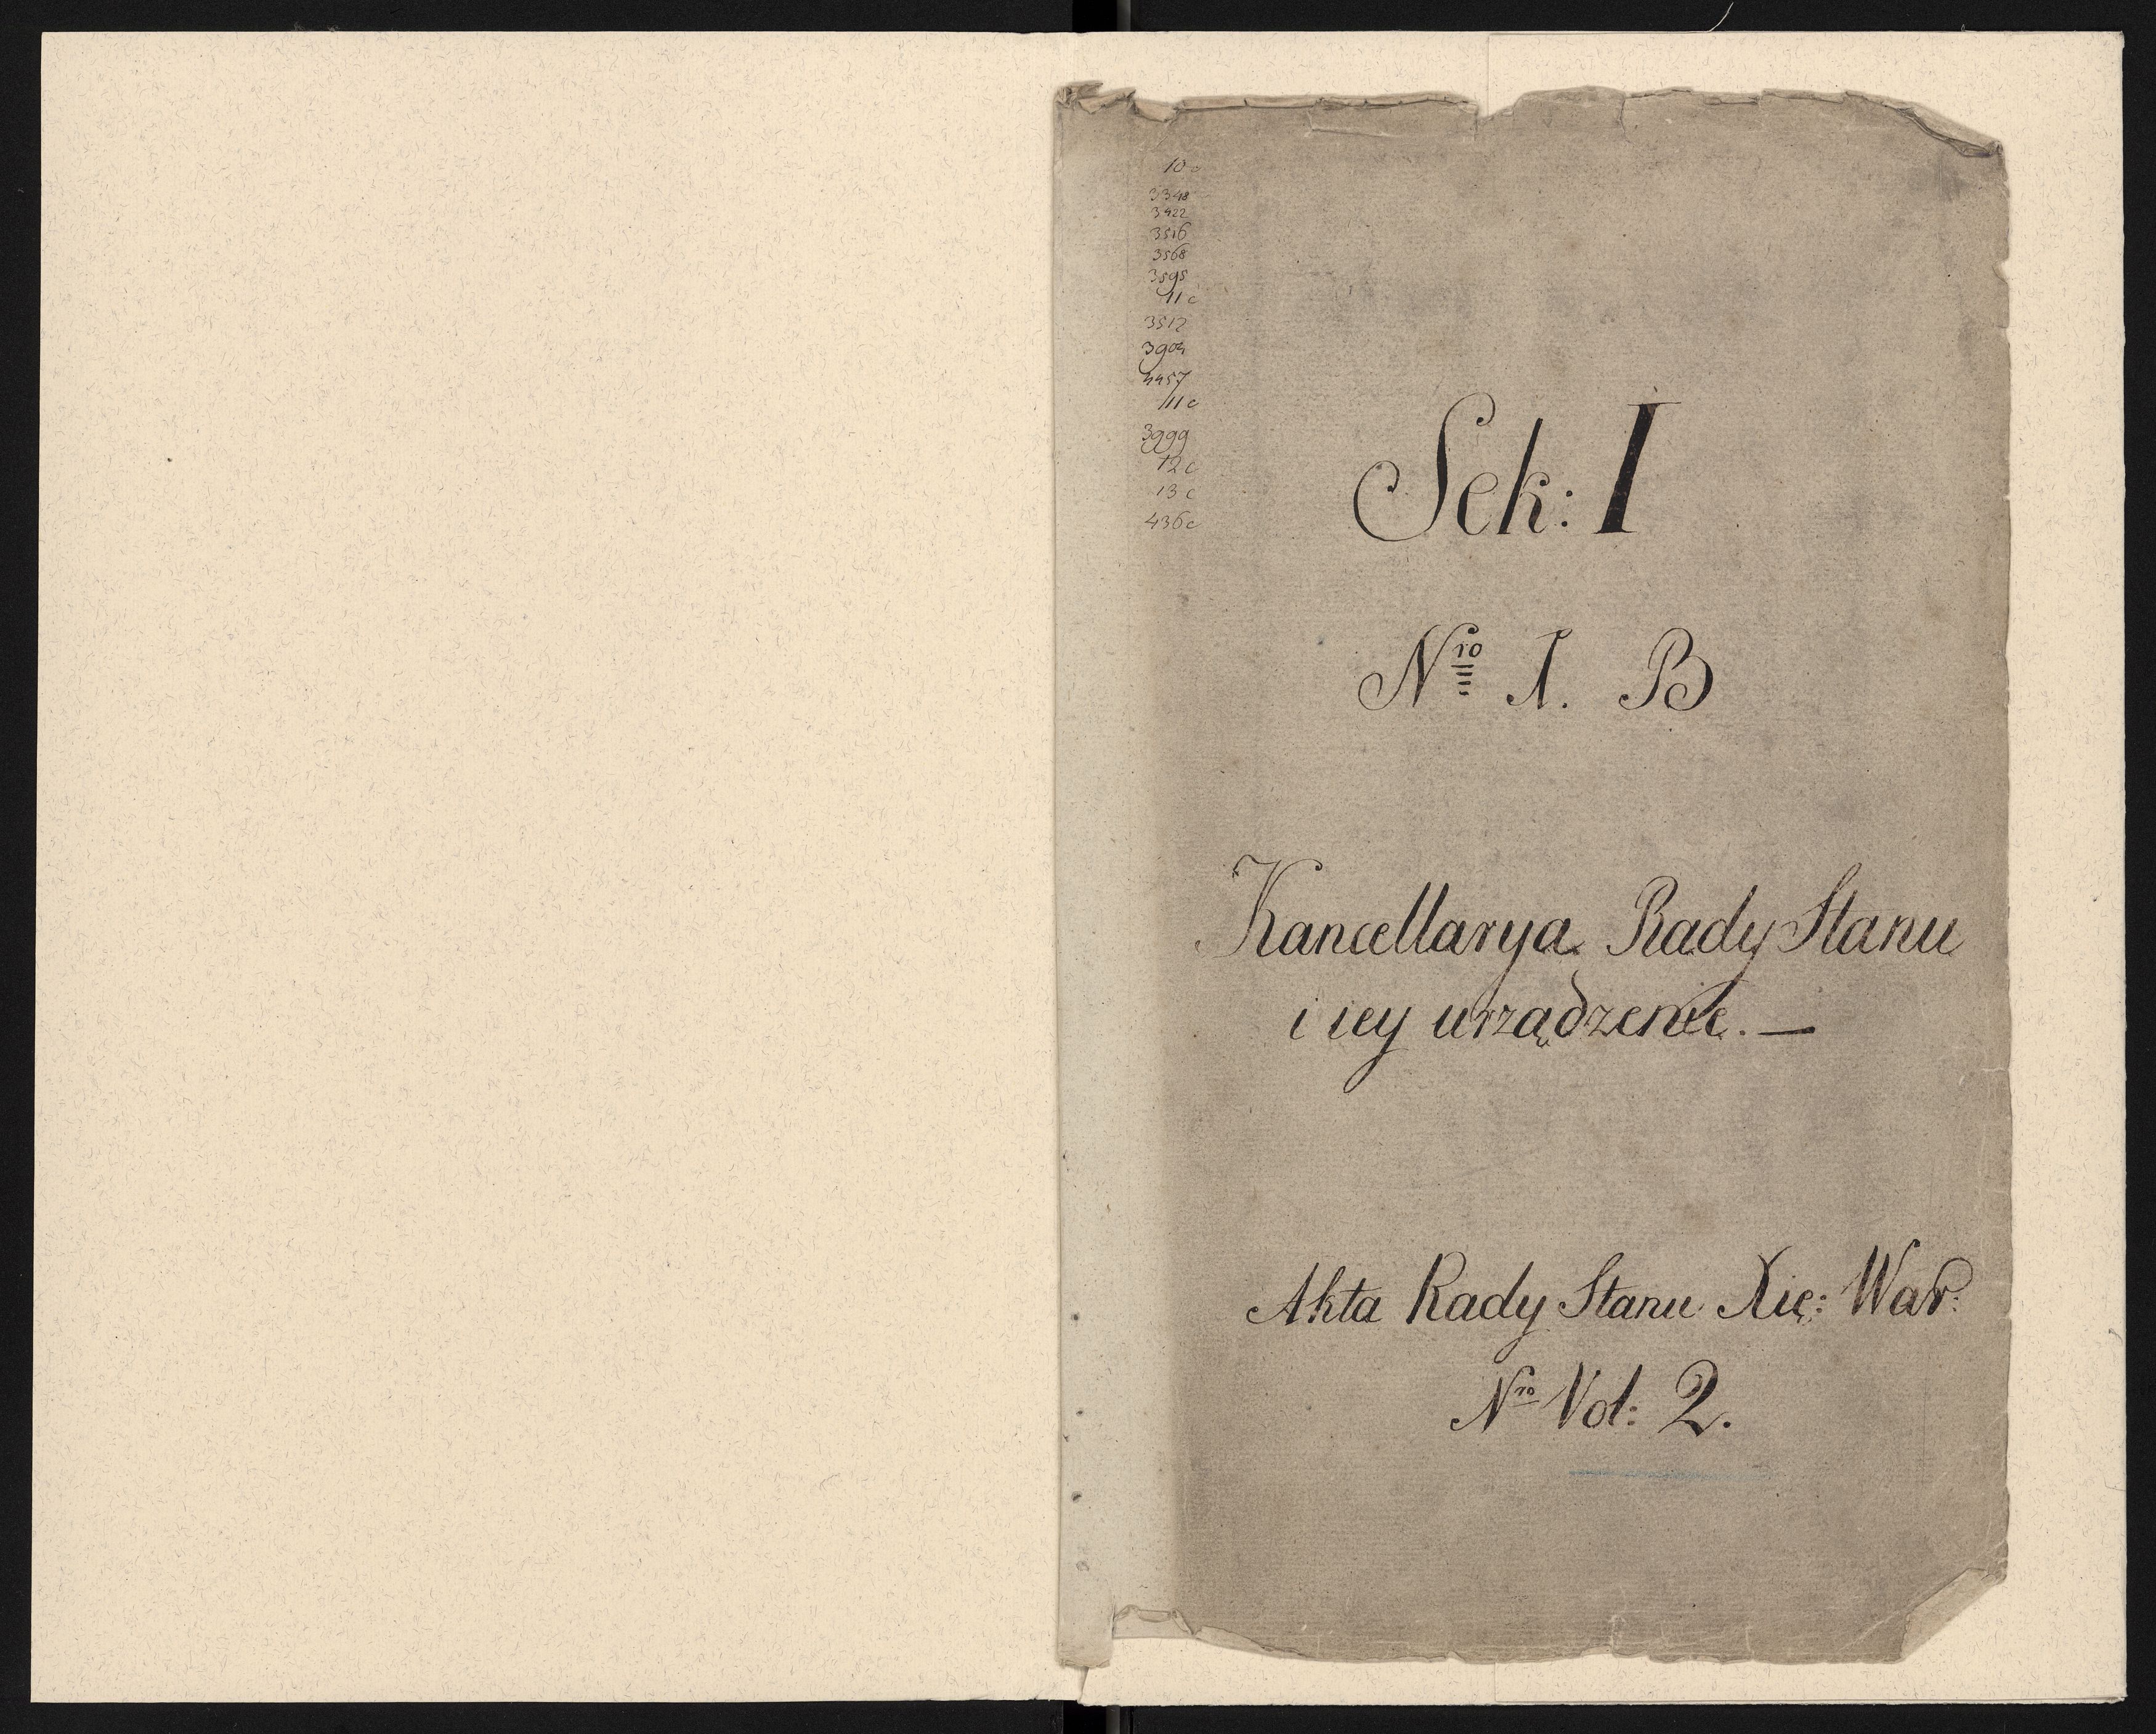 10 c
3348
3422
3516
3568
3595
11 c
3512
3904
4457
111 c
3999
12 c
13 c
436 c
Sek: I
Nro 1. B
Kancellarya Rady Stanu
i iey urządzenie. —
Akta Rady Stanu Xię: War:
Nro Vol: 2.